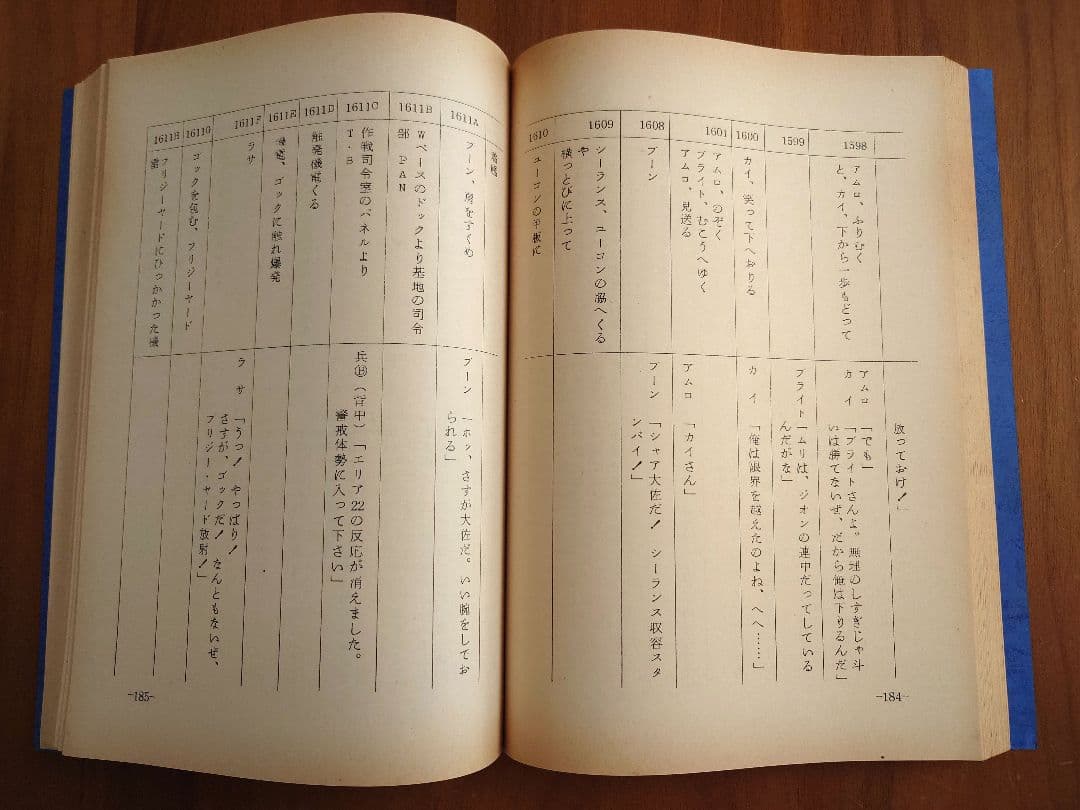 放っておけ!」
1598
アムロ、ふりむく
と、カイ、下から一歩もどって
アムロ「でも」
カイ「ブライトさんよ。無理のしすぎじゃ斗
いは勝てないぜ、だから俺は下りるんだ」
1599
ブライト「ムリは、ジオンの連中だってしている
んだがな」
1600
カイ、笑って下へおりる
カイ「俺は限界を越えたのよね、へへ……」
1601
アムロ、のぞく
ブライト、むこうへゆく
アムロ、見送る
アムロ「カイさん」
1608
ブーン
ブーン「シャア大佐だ! シーランス収容スタ
ンバイ!」
1609
シーランス、ユーコンの脇へくる
や
横っとびに上って
1610
ユーコンの甲板に
-184-
着艦
1611A
ブーン、肩をすくめ
ブーン「ホッ、さすが大佐だ。いい腕をしてお
られる」
1611B
Wベースのドックより基地の司令
部 PAN
1611C
作戦司令室のパネルより
T・B
兵Ⓑ(背中)「エリア22の反応が消えました。
警戒体勢に入って下さい」
1611D
触発機雷くる
1611E
機雷、ゴックに触れ爆発
1611F
ラサ
ラサ「うっ! やっぱり!
さすが、ゴックだ! なんともないぜ、
フリジー・ヤード放射!」
1611G
ゴックを包む、フリジーヤード
1611H
フリジーヤードにひっかかった機
雷
-185-